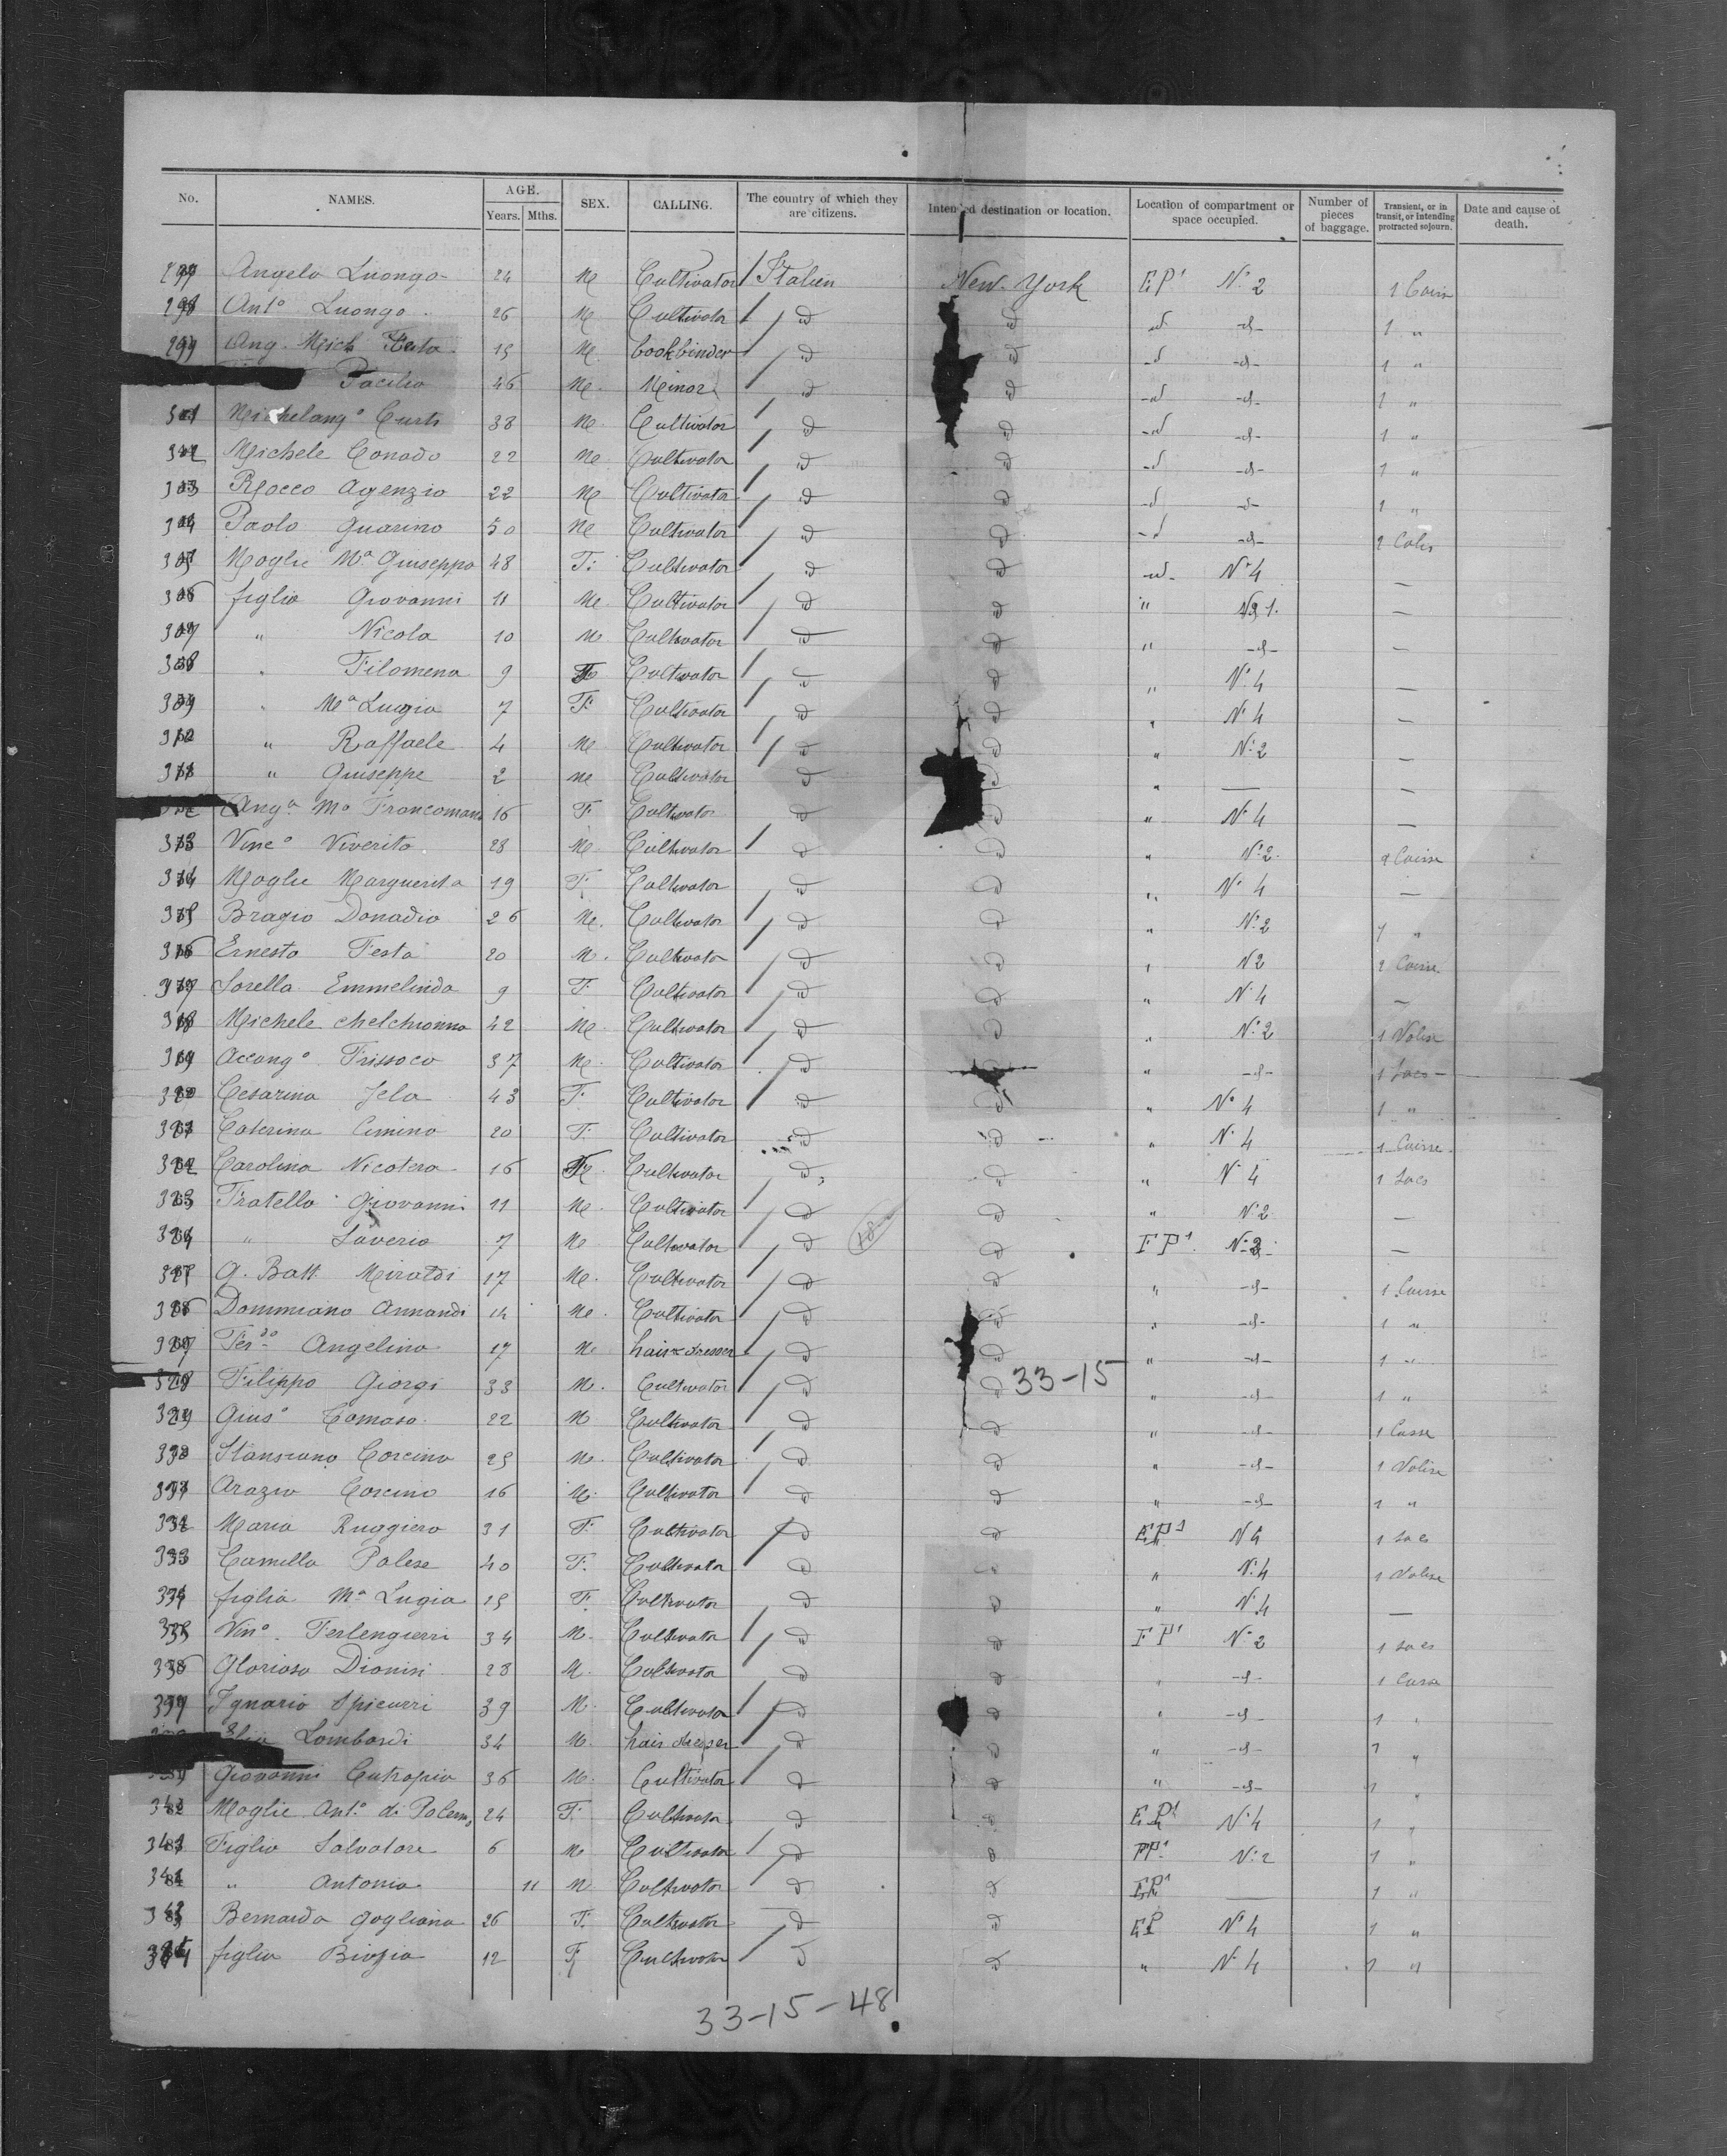 No. NAMES. AGE. Years. Mths. SEX. CALLING. The country of which they are citizens. Intended destination or location. Location of compartment or space occupied. Number of pieces of baggage. Transient, or in transit, or intending protracted sojourn. Date and cause of death.
Angelo Luongo 24 M Cultivator Italien New. York EP¹ N° 2 1
298 Ant° Luongo 26 M Cultivator id id id -id- 1 "
299 Ang. Mich 15 M. bookbinder id id id -id- 1 "
Pacilio 46 M. Minor id id id -id- 1 "
301 Michelang° Curti 38 M. Cultivator id id id -id- 1 "
302 Michele Conado 22 M Cultivator id id id -id- 1 "
303 Rocco Agenzio 22 M Cultivator id id id -id- 1 "
304 Paolo Guarino 50 M Cultivator id id id -id- 2 Colis
305 Moglie Mª Giuseppa 48 F. Cultivator id id id N° 4 —
306 figlio Giovanni 11 M. Cultivator id id " —
307 " Nicola 10 M Cultivator id id " -id- —
308 " Filomena 9 F Cultivator id id " N° 4 —
309 " Mª Luigia 7 F Cultivator id id " N° 4 —
310 " Raffaele 4 M Cultivator id id " N° 2 —
311 " Giuseppe 2 M Cultivator id id " — —
Angª Mª 16 F Cultivator id id " N° 4 —
313 Vinc° Viverito 28 M. Cultivator id id " N° 2
314 Moglie Marguerita 19 F. Cultivator id id " N° 4 —
315 Bragio Donadio 26 M. Cultivator id id " N° 2 1 "
316 Ernesto Festa 20 M. Cultivator id id " N 2
317 Sorella Emmelinda 9 F. Cultivator id id " N° 4 —
318 Michele 42 M. Cultivator id id " N° 2 1 Valise
319 Accang° Frissoco 37 M. Cultivator id id " -id- 1 Sacs
320 Cesarina Jela 43 F. Cultivator id id " N° 4 1 "
321 Caterina Cimino 20 F. Cultivator id id " N° 4 1 Caisse
322 Carolina Nicotera 16 F. Cultivator id id " N° 4 1 Sacs
323 Fratello Giovanni 11 M. Cultivator id id " N° 2 —
324 " Saverio 7 M Cultivator id id FP¹ —
325 G. Batt. Miraldi 17 M. Cultivator id id " -id- 1 Caisse
326 Dommiano Armandi 14 M. Cultivator id id " -id- 1 "
327 Ferdº Angelino 17 M. hair dresser id id " -id- 1 "
328 Filippo Giorgi 33 M. Cultivator id id 33-15 " -id- 1 "
329 Gius° Tomaso 22 M Cultivator id id " -id- 1 Casse
330 Corcino 25 M. Cultivator id id " -id- 1 Valise
331 Orazio Corcino 16 M. Cultivator id id " -id- 1 "
332 Maria Ruggiero 31 F. Cultivator id id EP¹ N 4 1 sacs
333 Camilla Palese 40 F. Cultivator id id " N° 4 1 Valise
334 figlia Mª Lugia 15 F. Cultivator id id " N° 4 —
335 Vin° Terlengierri 34 M. Cultivator id id FP¹ N° 2 1 sacs
336 Glorioso Dionisi 28 M. Cultivator id id " -id- 1 Casse
Ignazio Spicurri 39 M. Cultivator id id " -id- 1 "
Elia Lombardi 34 M. hair dresser id id " -id- 1 "
Giovanni Cutropia 36 M. Cultivator id id " -id- 1 "
Moglie Ant° di Palermo 24 F. Cultivator id id EP¹ N° 4 1 "
341 Figlio Salvatore 6 M Cultivator id id FP¹ N° 2 1 "
" Antonio 11 M Cultivator id id EP¹ — 1 "
Bernarda Gogliano 26 F. Cultivator id id EP N° 4 1 "
figlia Biagia 12 F Cultivator id id " N° 4 1 "
33-15-48